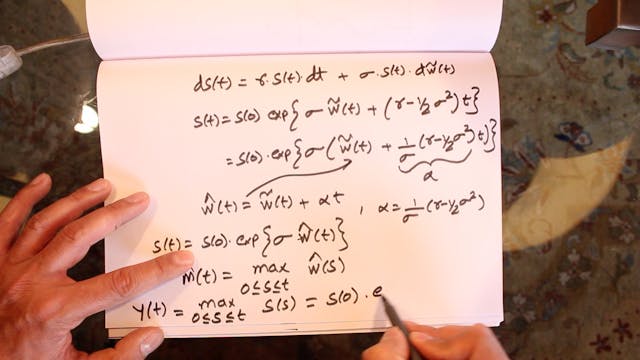 dS(t) = r.S(t).dt + σ.S(t).dW̃(t)
S(t) = S(0) exp{σ W̃(t) + (r-½σ²)t}
= S(0).exp{σ(W̃(t) + 1/σ(r-½σ²)t)}
α
Ŵ(t) = W̃(t) + αt , α = 1/σ(r-½σ²)
S(t) = S(0).exp{σ Ŵ(t)}
M̂(t) = max 0≤s≤t Ŵ(s)
Y(t) = max 0≤s≤t S(s) = S(0).e